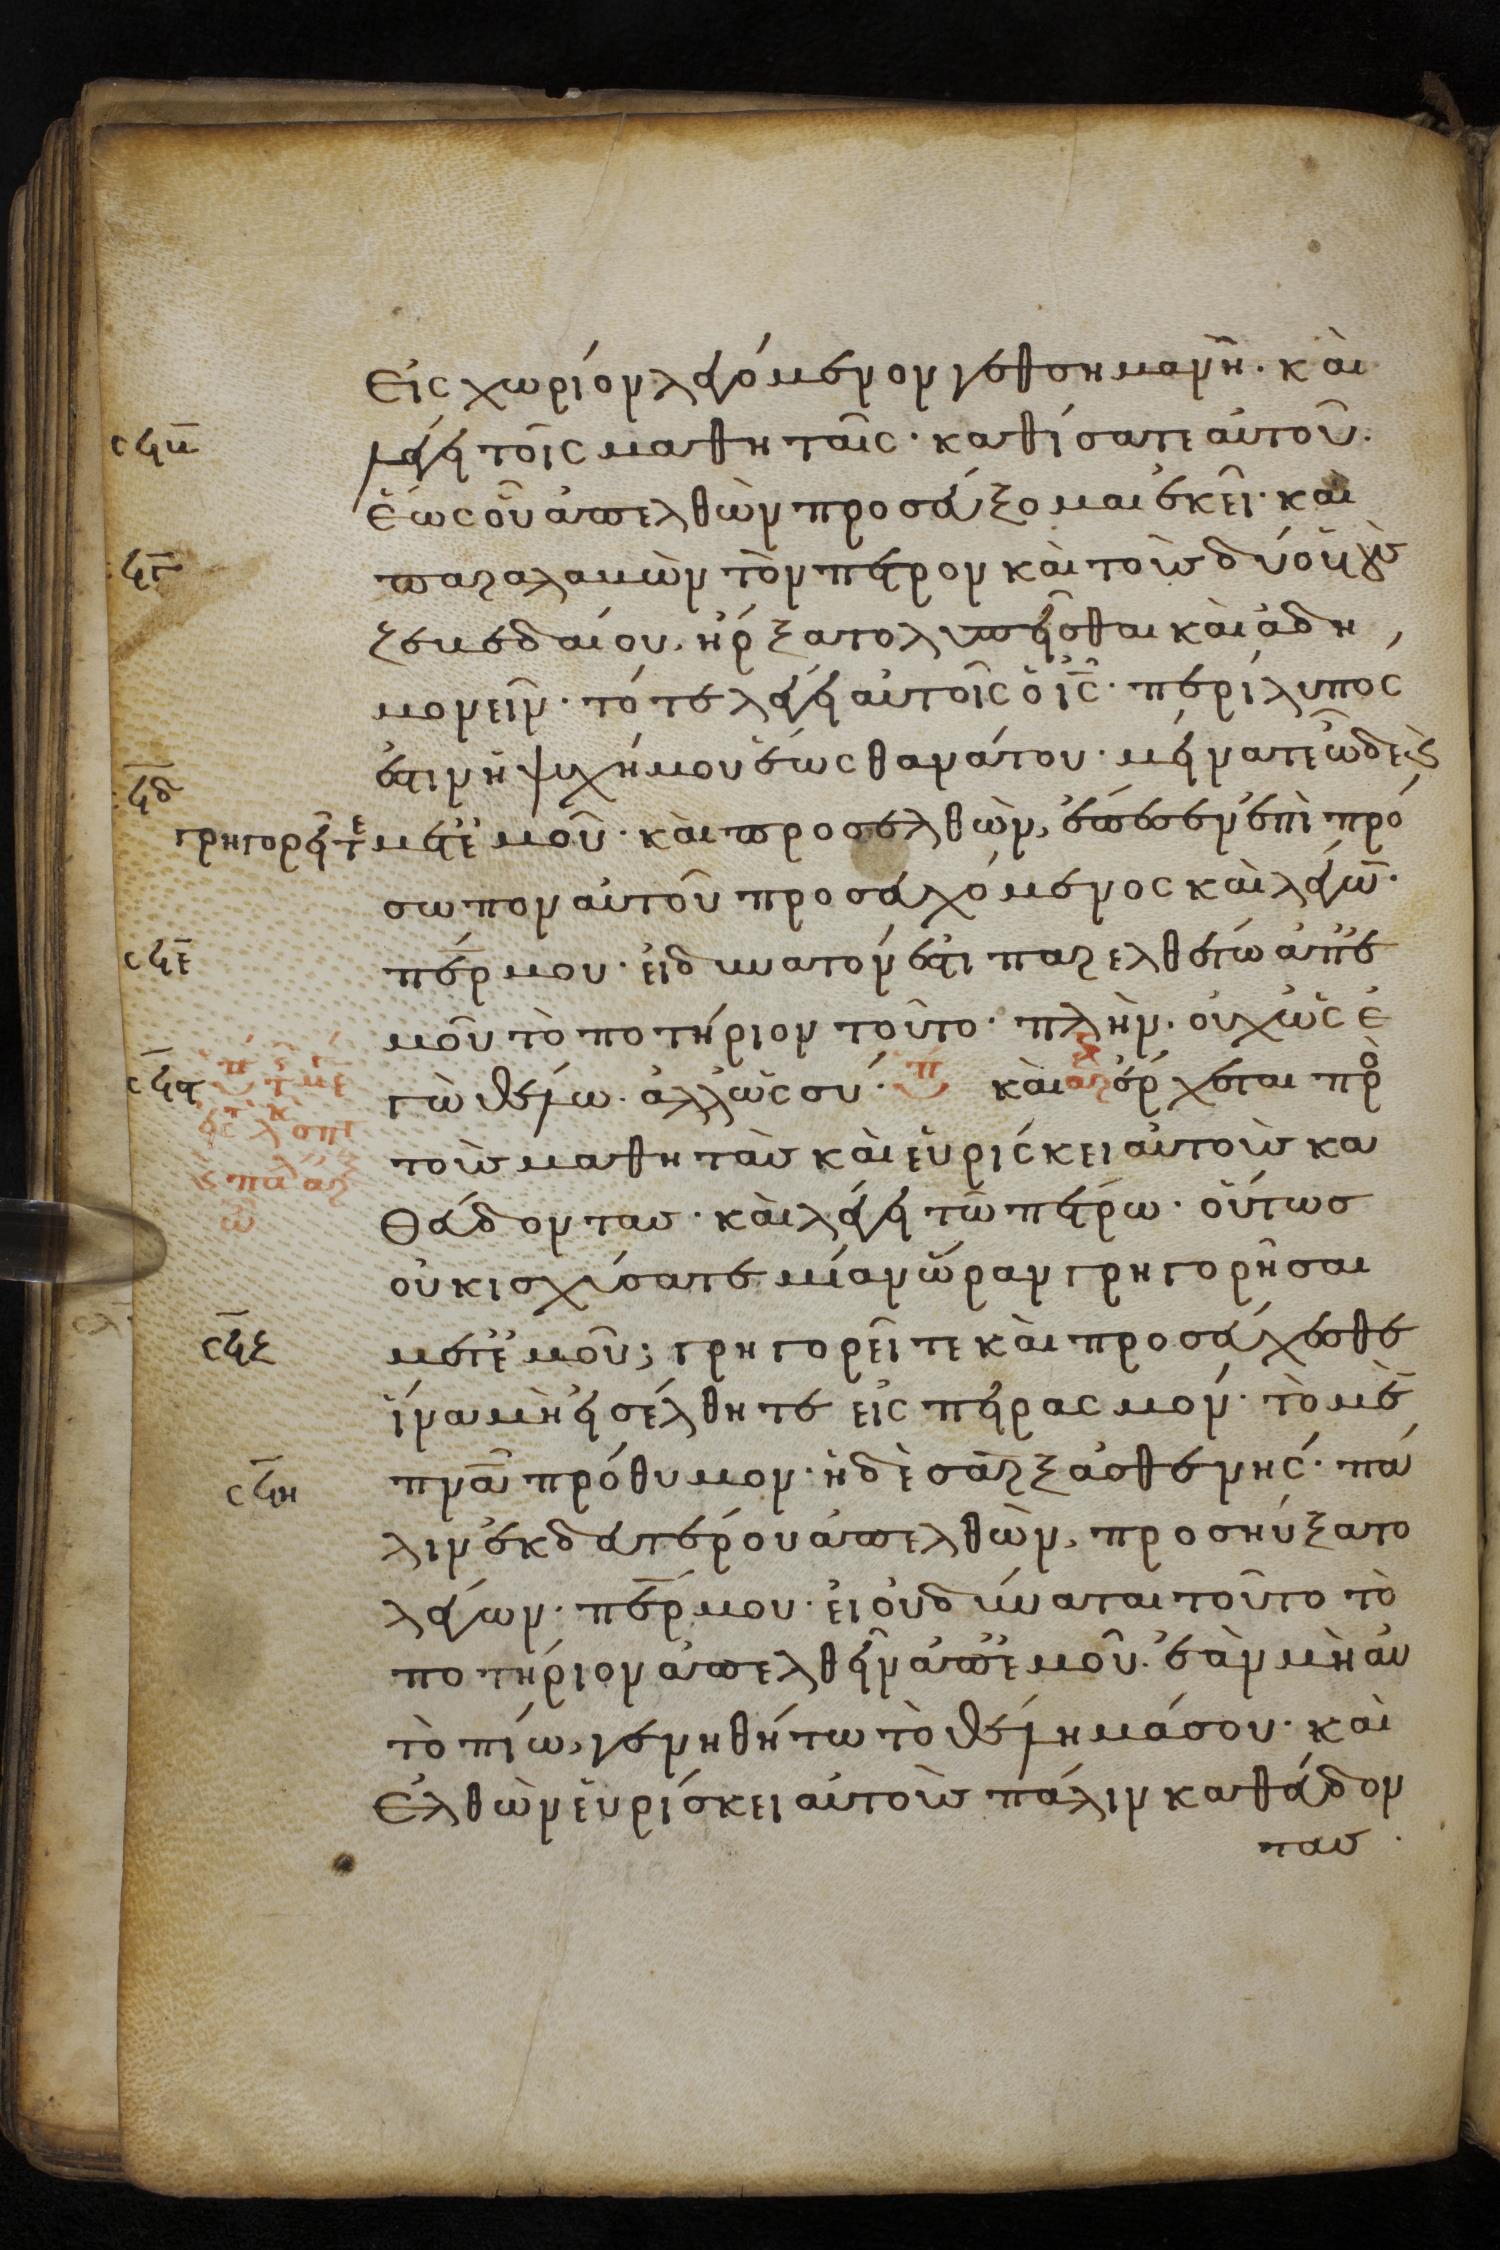 εἰς χωρίον λεγόμενον γεθσημανῆ· καὶ
σϟβ λέγει τοῖς μαθηταῖς· καθίσατε αὐτοῦ·
ἕως οὗ ἀπελθὼν προσεύξομαι ἐκεῖ· καὶ
ϟγ παραλαβὼν τὸν πέτρον καὶ τοὺς δύο υἱοὺς
ζεβεδαίου, ἤρξατο λυπεῖσθαι καὶ ἀδη
μονεῖν· τότε λέγει αὐτοῖς ὁ ις· περίλυπός
ἐστιν ἡ ψυχή μου ἕως θανάτου· μείνατε ὧδε καὶ
ϟδ γρηγορεῖτε μετ ἐμοῦ· καὶ προσελθὼν, ἔπεσεν ἐπὶ πρό
σωπον αὐτοῦ προσευχόμενος καὶ λέγων·
σϟε περ μου· εἰ δυνατόν ἐστι παρελθέτω ἀπ ἐ
μοῦ τὸ ποτήριον τοῦτο· πλὴν οὐχ ὡς ἐ
σϟϛ γὼ θέλω· ἀλλ ὡς σύ· καὶ ἔρχεται πρὸς
τοὺς μαθητὰς καὶ εὑρίσκει αὐτοὺς κα
θεύδοντας· καὶ λέγει τῶ πέτρω· οὕτως
οὐκ ἰσχύσατε μίαν ὥραν γρηγορῆσαι
σϟζ μετ ἐμοῦ; γρηγορεῖτε καὶ προσεύχεσθε
ἵνα μὴ εἰσέλθητε εἰς πειρασμόν· τὸ μὲν
σϟη πνα πρόθυμον· ἡ δὲ σὰρξ ἀσθενής· πά
λιν ἐκ δευτέρου ἀπελθὼν, προσηύξατο
λέγων· περ μου· εἰ οὐ δύναται τοῦτο τὸ
ποτήριον ἀπελθεῖν ἀπ ἐμοῦ ἐὰν μὴ αὐ
τὸ πίω, γενηθήτω τὸ θέλημά σου· καὶ
ἐλθὼν εὑρίσκει αὐτοὺς πάλιν καθεύδον
τας·